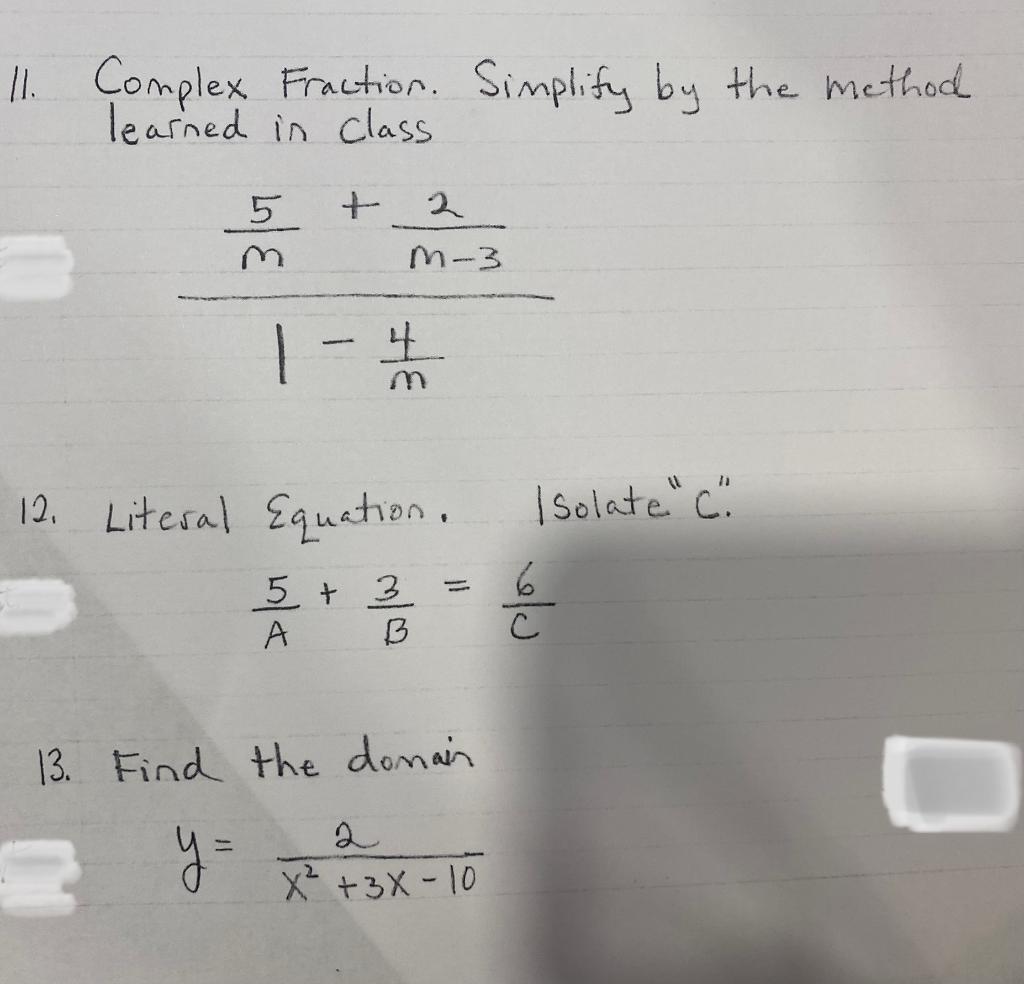 11. Complex Fraction. Simplify by the method
learned in class
5/m + 2/(m-3)
1 - 4/m
12. Literal Equation. Isolate "C".
5/A + 3/B = 6/C
13. Find the domain
y = 2/(x² + 3x - 10)